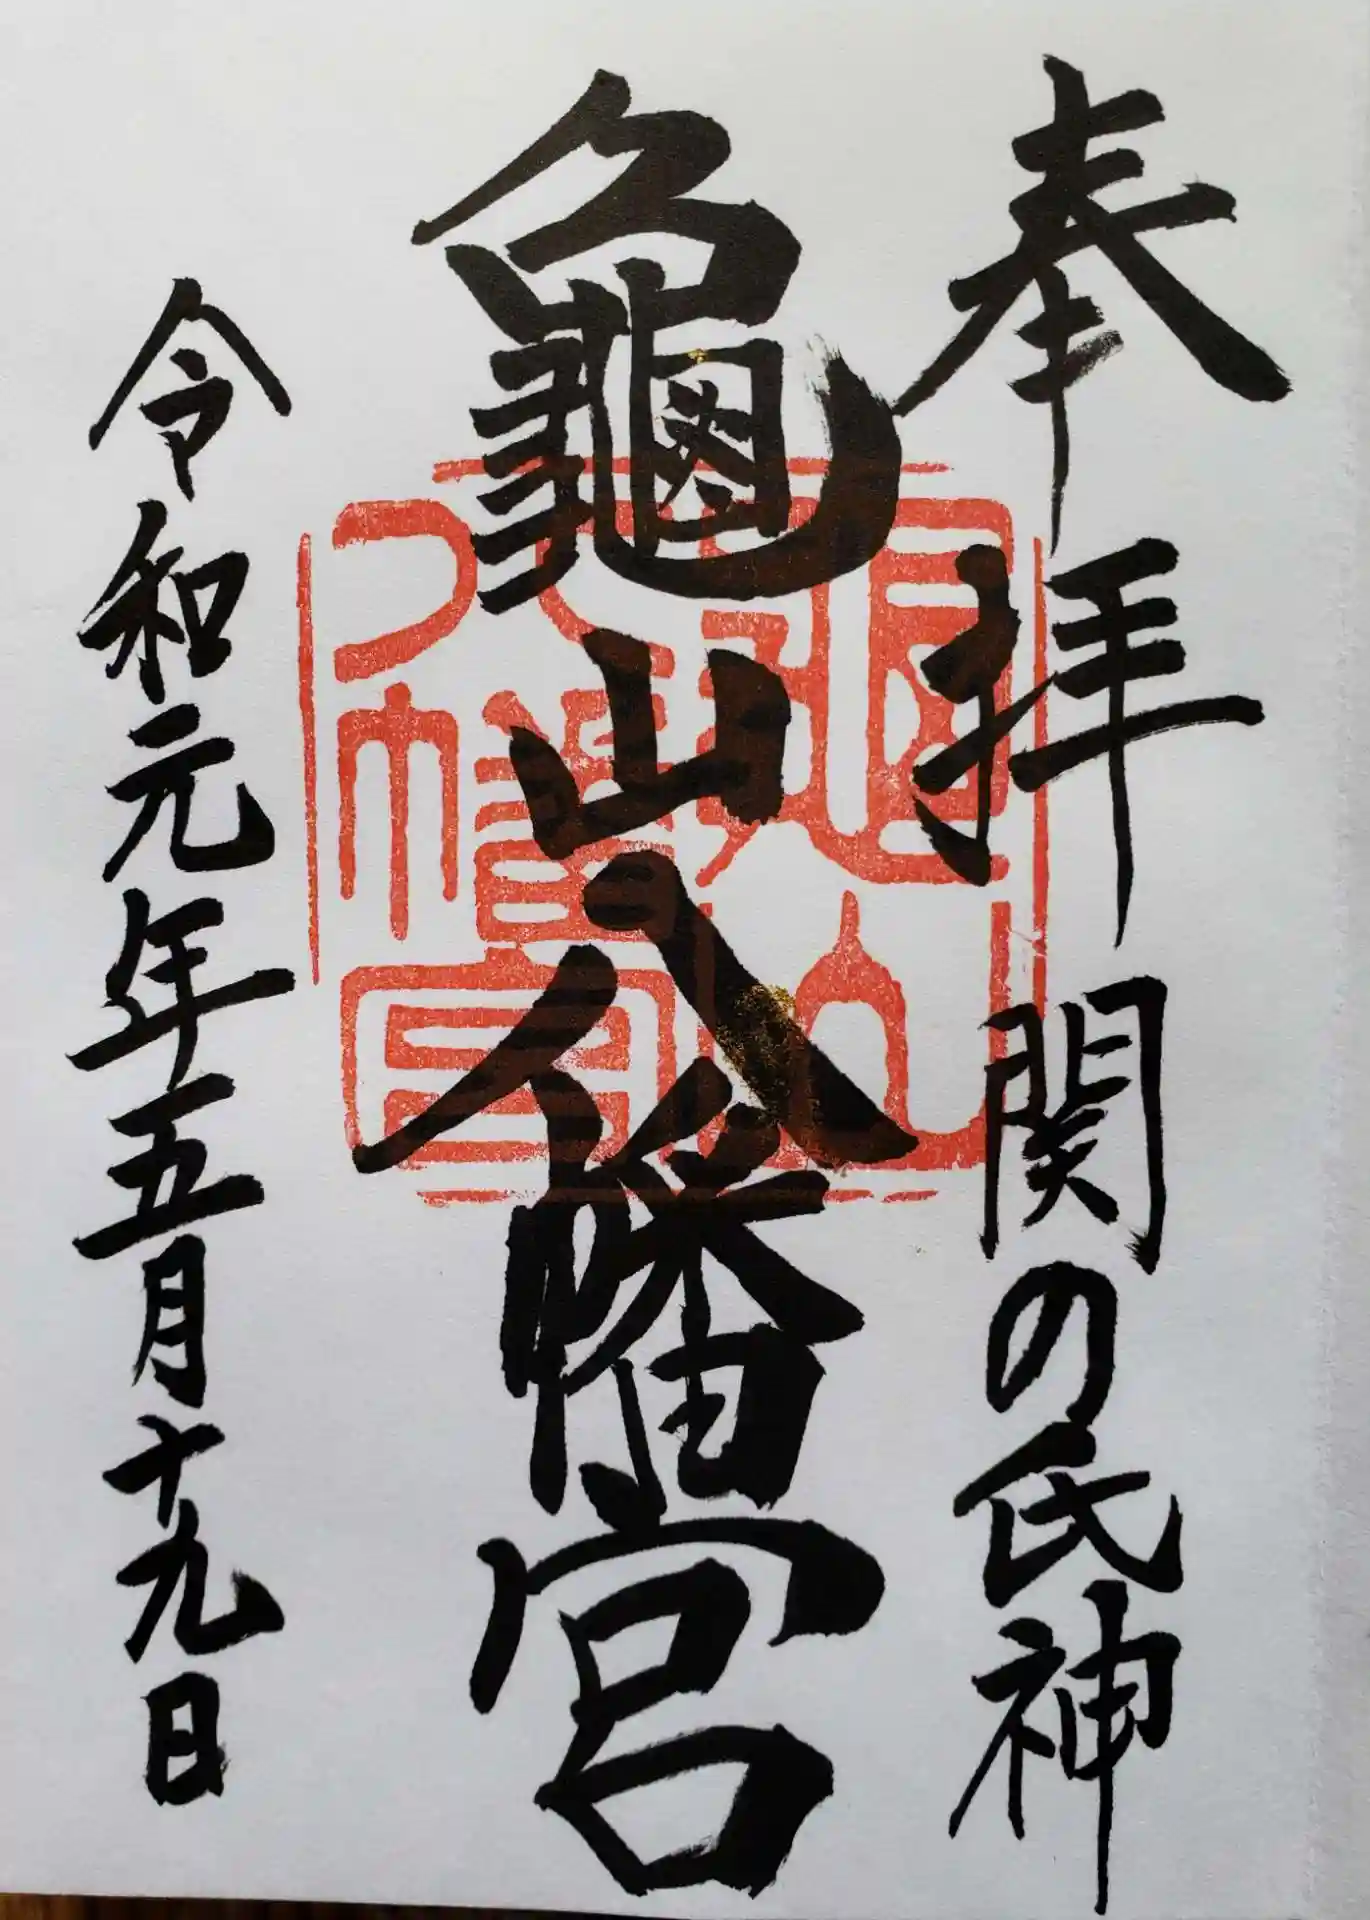 奉拝 関の氏神
龜山八幡宮
令和元年五月十九日
龜山
八幡宮